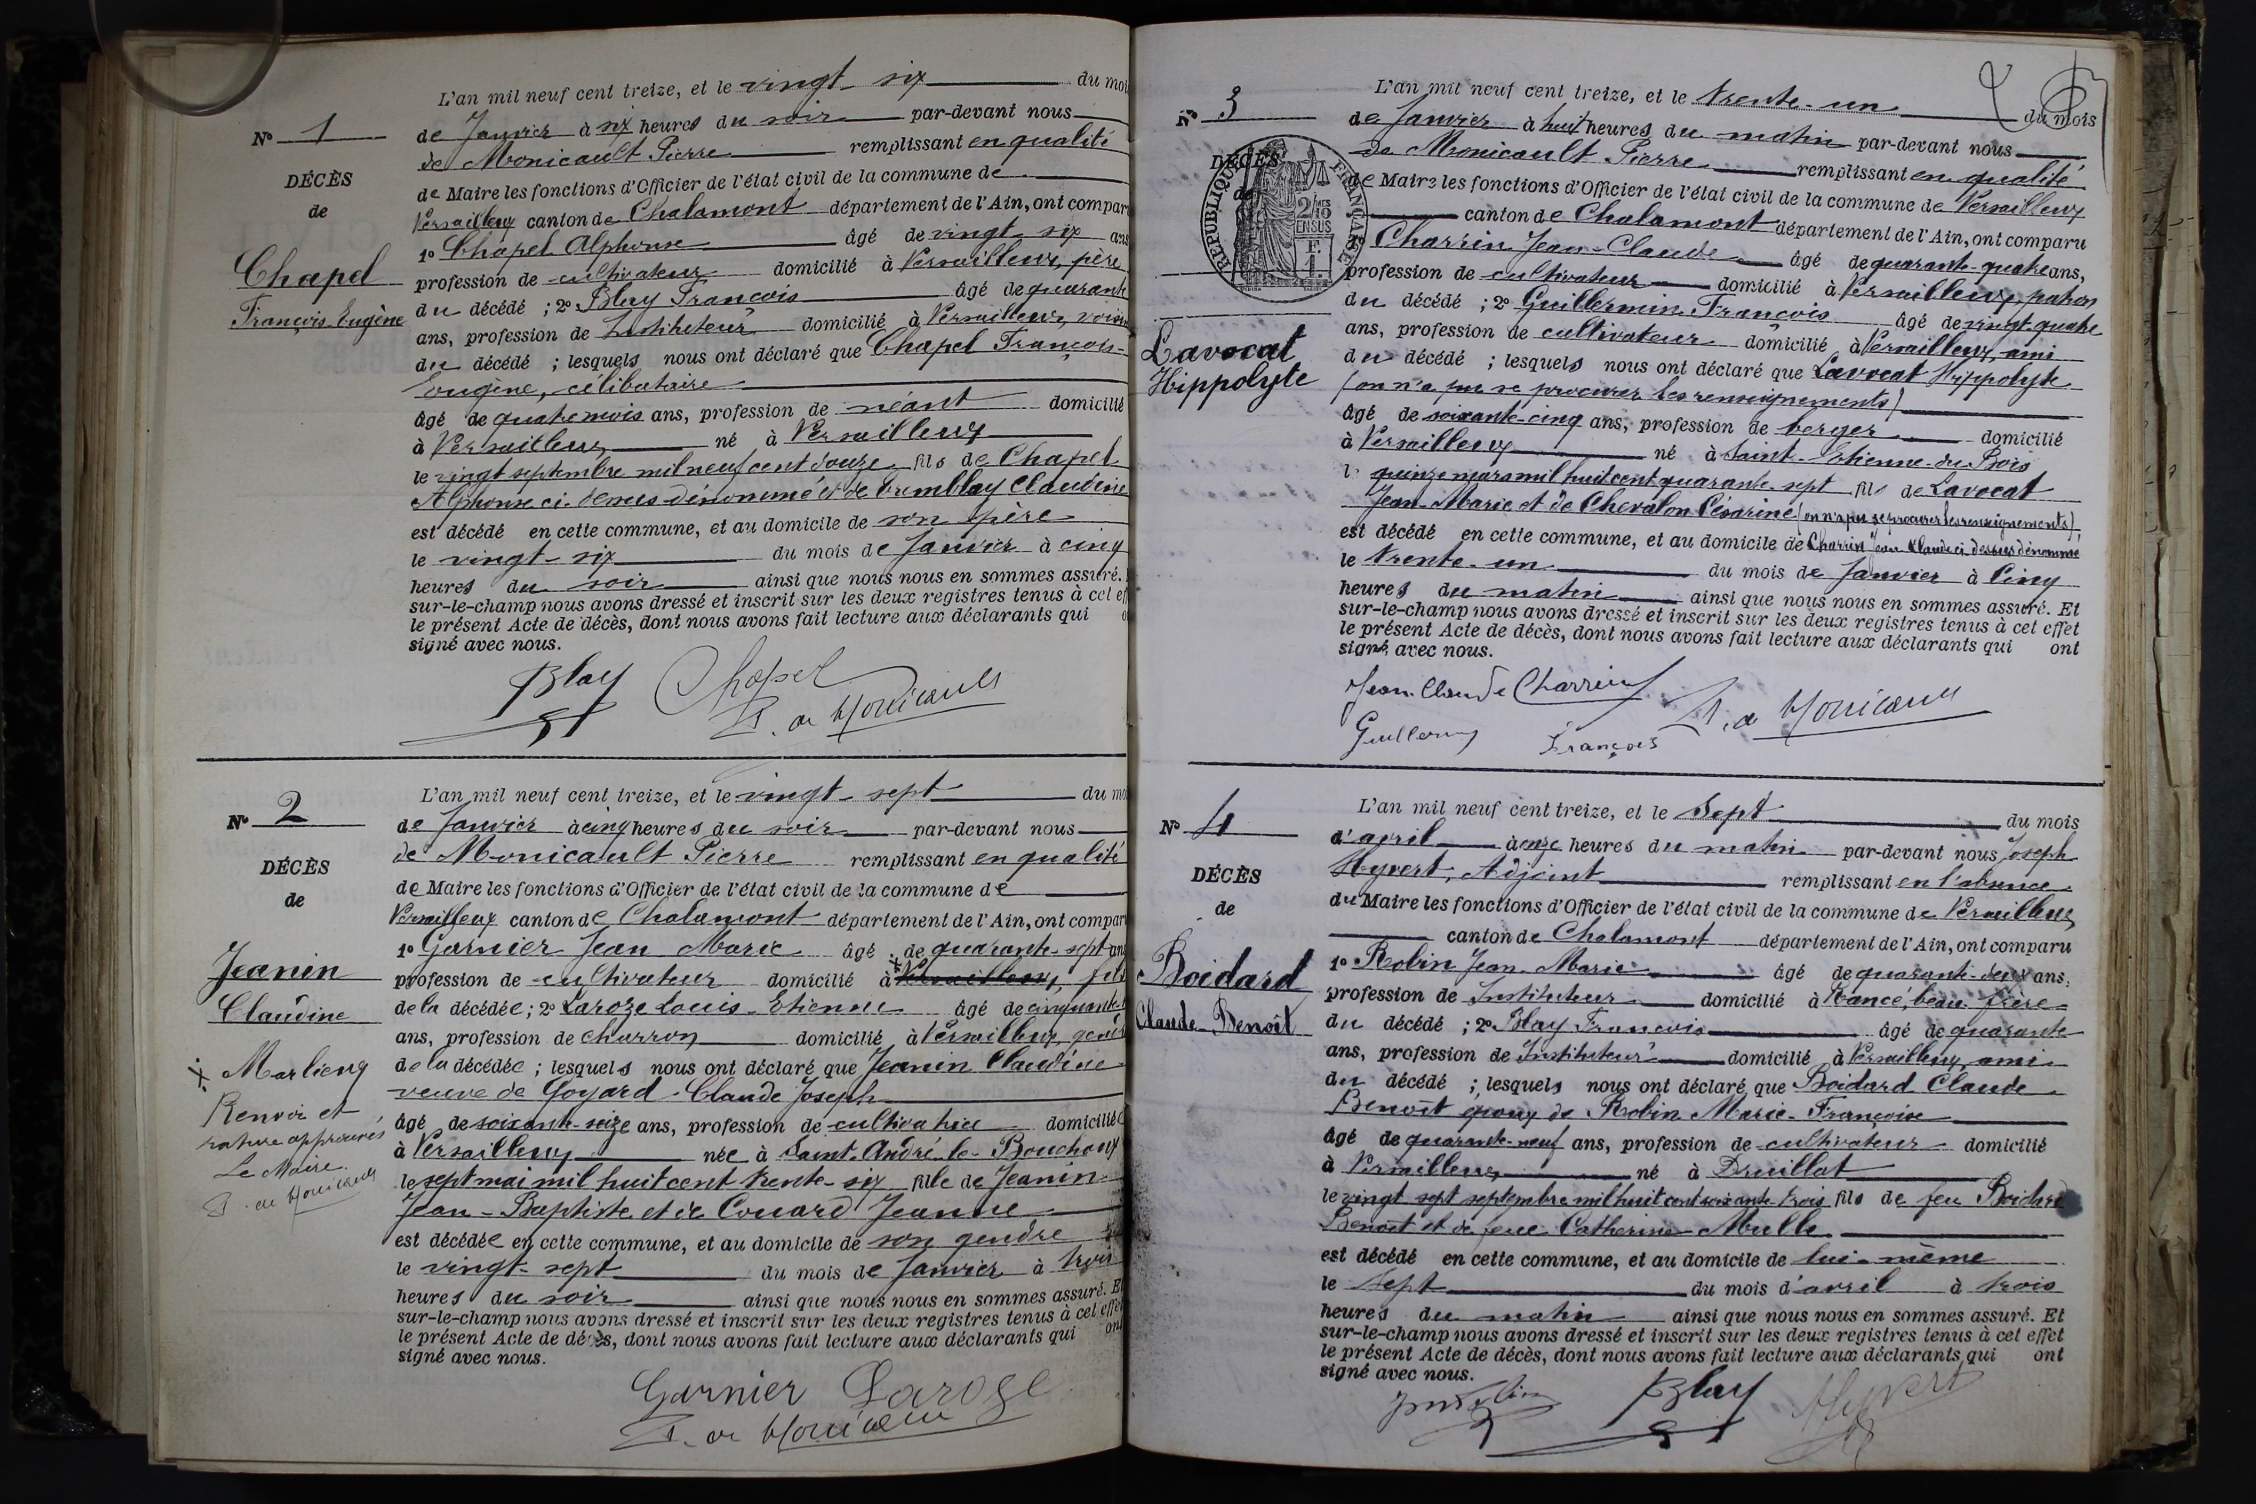 L'an mil neuf cent treize, et le vingt-six du moi
N° 1
de Janvier à six heures du soir par-devant nous
de Monicault Pierre remplissant en qualité
DÉCÈS
de
de Maire les fonctions d'Officier de l'état civil de la commune de
Versailleux canton de Chalamont département de l'Ain, ont compar
1° Chapel Alphonse âgé de vingt-six ans
Chapel
François-Eugène
profession de cultivateur domicilié à Versailleux, père
du décédé ; 2° Blay François âgé de quarante
ans, profession de Instituteur domicilié à Versailleux, voisin
du décédé ; lesquels nous ont déclaré que Chapel François-
Eugène, célibataire
âgé de quatre mois ans, profession de néant domicilié
à Versailleux né à Versailleux
le vingt septembre mil neuf cent douze fils de Chapel
Alphonse ci-dessus dénommé et de Tremblay Claudine
est décédé en cette commune, et au domicile de son père
le vingt-six du mois de Janvier à cinq
heures du soir ainsi que nous nous en sommes assuré.
sur-le-champ nous avons dressé et inscrit sur les deux registres tenus à cet ef
le présent Acte de décès, dont nous avons fait lecture aux déclarants qui o
signé avec nous.
Blay Chapel
P. de Monicault
L'an mil neuf cent treize, et le vingt-sept du mo
N° 2
de Janvier à cinq heures du soir par-devant nous
de Monicault Pierre remplissant en qualité
DÉCÈS
de
de Maire les fonctions d'Officier de l'état civil de la commune de
Versailleux canton de Chalamont département de l'Ain, ont compar
1° Garnier Jean Marie âgé de quarante-sept ans
Jeanin
Claudine
profession de cultivateur domicilié à Versailleux, fils
de la décédée ; 2° Laroze Louis-Etienne âgé de cinquante
ans, profession de charron domicilié à Versailleux, gendre
de la décédée ; lesquels nous ont déclaré que Jeanin Claudine
veuve de Goyard Claude Joseph
âgé de soixante-seize ans, profession de cultivatrice domiciliée
à Versailleux née à Saint-André-le-Bouchoux
le sept mai mil huit cent trente-six fille de Jeanin
Jean-Baptiste et de Couard Jeanne
est décédée en cette commune, et au domicile de son gendre
le vingt-sept du mois de Janvier à trois
heures du soir ainsi que nous nous en sommes assuré. E
sur-le-champ nous avons dressé et inscrit sur les deux registres tenus à cet effet
le présent Acte de décès, dont nous avons fait lecture aux déclarants qui ont
signé avec nous.
Marlieux
Renvoi et
rature approuvés
Le Maire
P. de Monicault
Garnier Laroze
P. de Monicault
L'an mil neuf cent treize, et le trente-un du mois
N° 3
de Janvier à huit heures du matin par-devant nous
de Monicault Pierre remplissant en qualité
DÉCÈS
de
RÉPUBLIQUE FRANÇAISE
2/10 EN SUS
F. 1.
de Maire les fonctions d'Officier de l'état civil de la commune de Versailleux
canton de Chalamont département de l'Ain, ont comparu
1° Charrin Jean-Claude âgé de quarante-quatre ans,
profession de cultivateur domicilié à Versailleux, patron
du décédé ; 2° Guillermin François âgé de vingt-quatre
ans, profession de cultivateur domicilié à Versailleux, ami
Lavocat
Hippolyte
du décédé ; lesquels nous ont déclaré que Lavocat Hippolyte
(on n'a pu se procurer les renseignements)
âgé de soixante-cinq ans, profession de berger domicilié
à Versailleux né à Saint-Etienne-du-Bois
le quinze mars mil huit cent quarante-sept fils de Lavocat
Jean-Marie et de Chevalon Césarine (on n'a pu se procurer les renseignements),
est décédé en cette commune, et au domicile de Charrin Jean Claude ci-dessus dénommé
le trente-un du mois de Janvier à Cinq
heures du matin ainsi que nous nous en sommes assuré. Et
sur-le-champ nous avons dressé et inscrit sur les deux registres tenus à cet effet
le présent Acte de décès, dont nous avons fait lecture aux déclarants qui ont
signé avec nous.
Jean-Claude Charrin P. de Monicault
Guillermin François
L'an mil neuf cent treize, et le Sept du mois
N° 4
d'avril à onze heures du matin par-devant nous Joseph
Hyvert, Adjoint remplissant en l'absence
DÉCÈS
de
du Maire les fonctions d'Officier de l'état civil de la commune de Versailleux
canton de Chalamont département de l'Ain, ont comparu
1° Robin Jean-Marie âgé de quarante-deux ans,
Boidard
Claude-Benoît
profession de Instituteur domicilié à Rancé, beau-frère
du décédé ; 2° Blay François âgé de quarante
ans, profession de Instituteur domicilié à Versailleux, ami
du décédé ; lesquels nous ont déclaré que Boidard Claude
Benoît époux de Robin Marie-Françoise
âgé de quarante-neuf ans, profession de cultivateur domicilié
à Versailleux né à Druillat
le vingt sept septembre mil huit cent soixante trois fils de feu Boidard
Benoît et de feue Catherine Mulle
est décédé en cette commune, et au domicile de lui-même
le Sept du mois d'avril à trois
heures du matin ainsi que nous nous en sommes assuré. Et
sur-le-champ nous avons dressé et inscrit sur les deux registres tenus à cet effet
le présent Acte de décès, dont nous avons fait lecture aux déclarants qui ont
signé avec nous.
Blay Hyvert